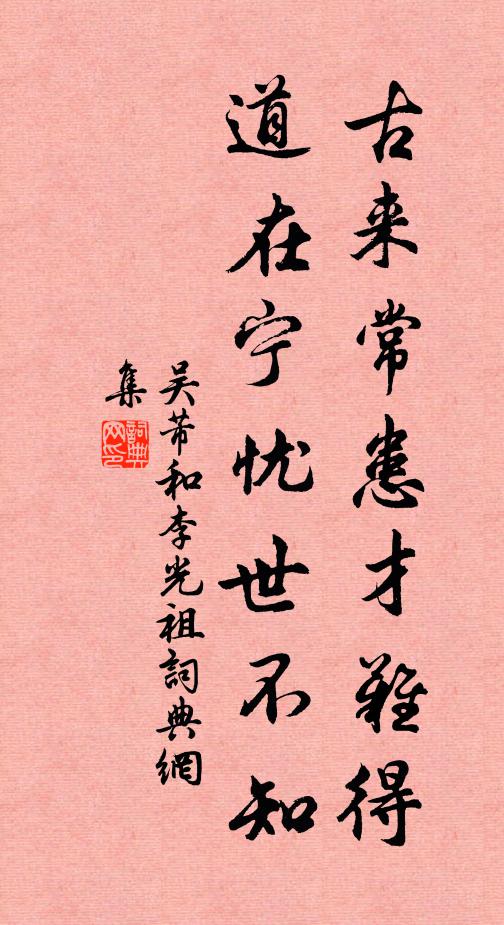 古来常患才难得
道在宁忧世不知
吴芾和李光祖詞典網
集
詞典
网印